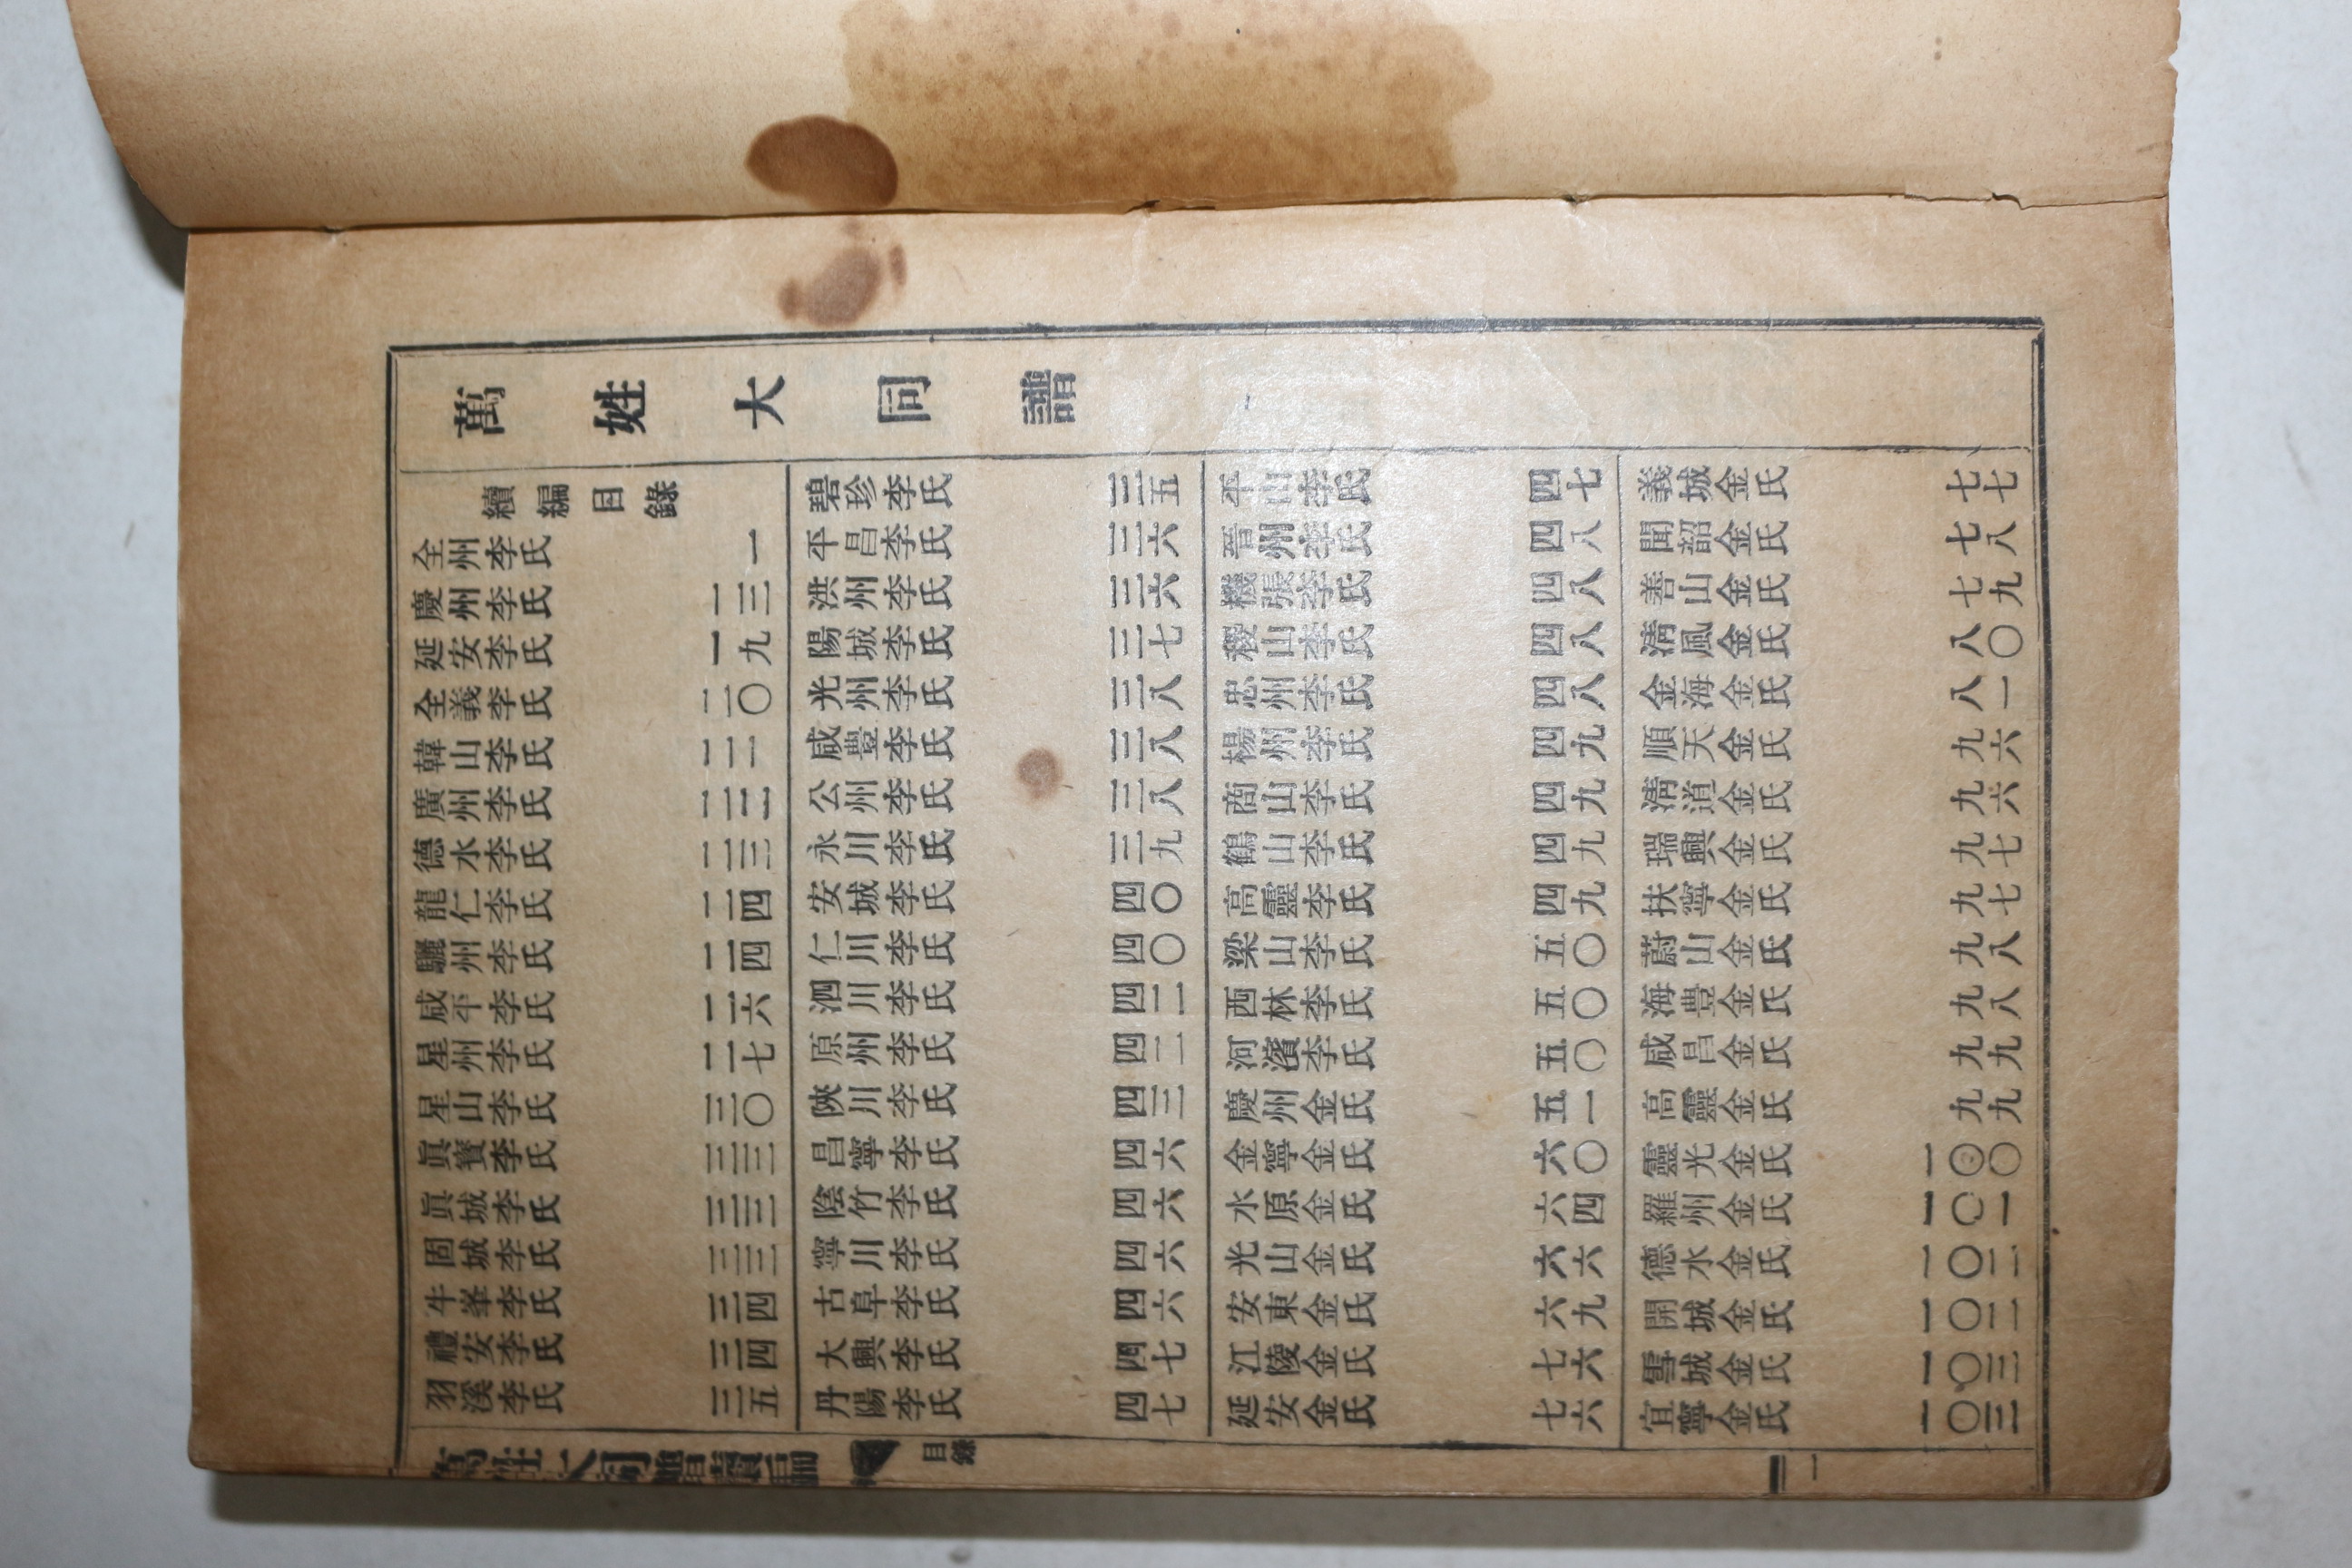 萬姓大同譜
續編目錄
全州李氏 一
慶州李氏 一三
延安李氏 一九
全義李氏 二〇
韓山李氏 二一
廣州李氏 二二
德水李氏 二三
龍仁李氏 二四
驪州李氏 二四
咸平李氏 二六
星州李氏 二七
星山李氏 三〇
眞寶李氏 三三
眞城李氏 三三
固城李氏 三三
牛峯李氏 三四
禮安李氏 三四
羽溪李氏 三五
碧珍李氏 三五
平昌李氏 三六
洪州李氏 三六
陽城李氏 三七
光州李氏 三八
咸豊李氏 三八
公州李氏 三八
永川李氏 三九
安城李氏 四〇
仁川李氏 四〇
泗川李氏 四二
原州李氏 四二
陜川李氏 四三
昌寧李氏 四六
陰竹李氏 四六
寧川李氏 四六
古阜李氏 四六
大興李氏 四七
丹陽李氏 四七
平山李氏 四七
晉州李氏 四八
機張李氏 四八
稷山李氏 四八
忠州李氏 四八
楊州李氏 四九
商山李氏 四九
鶴山李氏 四九
高靈李氏 四九
梁山李氏 五〇
西林李氏 五〇
河濱李氏 五〇
慶州金氏 五一
金寧金氏 六〇
水原金氏 六四
光山金氏 六六
安東金氏 六九
江陵金氏 七六
延安金氏 七六
義城金氏 七七
聞韶金氏 七八
善山金氏 七九
淸風金氏 八〇
金海金氏 八一
順天金氏 九六
淸道金氏 九六
瑞興金氏 九七
扶寧金氏 九七
蔚山金氏 九八
海豊金氏 九八
咸昌金氏 九九
高靈金氏 九九
靈光金氏 一〇〇
羅州金氏 一〇一
德水金氏 一〇二
開城金氏 一〇二
雪城金氏 一〇三
宜寧金氏 一〇三
萬姓大同譜續編
目錄
一